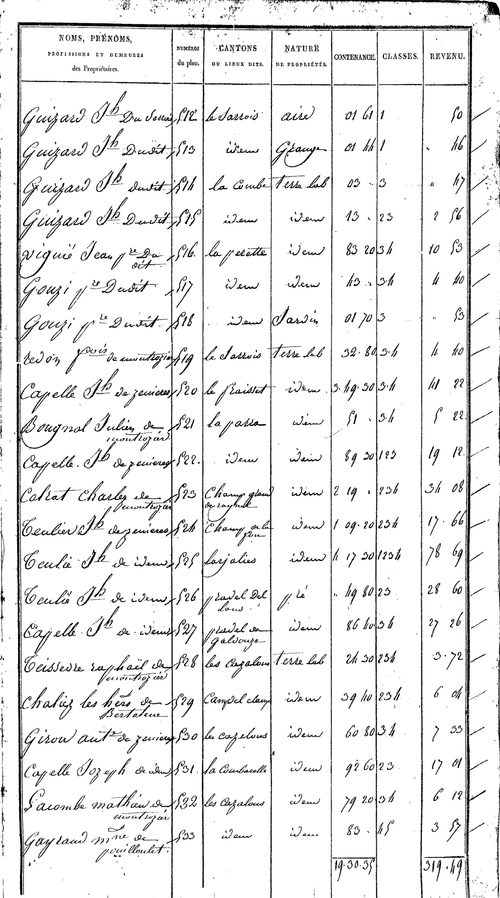 NOMS, PRÉNOMS, PROFESSIONS ET DEMEURES des Propriétaires. NUMÉROS du plan. CANTONS OU LIEUX DITS. NATURE DE PROPRIÉTÉS. CONTENANCE. CLASSES. REVENU.
Guizard Jh Du Sarrois 512 le Sarrois aire 01 61 1 50
Guizard Jh Dudit 513 idem Grange 01 44 1 " 46
Guizard Jh Dudit 514 la Combe terre lab 03 . 3 " 47
Guizard Jh Dudit 515 idem idem 13 . 23 2 56
Viguié Jean pre Du dit 516 la perette idem 83 20 34 10 53
Gouzi pre Dudit 517 idem idem 43 . 34 4 40
Gouzi pre Dudit 518 idem Jardin 01 70 3 " 53
519 le Sarrois terre lab 32 . 80 34 4 40
Capelle Jh de zenieres 520 le fraisset idem 3 . 49 . 30 34 41 22
Bougnol Julien de montrozier 521 la parra idem 51 . 34 5 22
Capelle Jh de zenieres 522 idem idem 89 30 123 19 12
Charles de montrozier 523 Champ grand idem 2 19 . 234 34 08
Jh de zenieres 524 Champ idem 1 09 . 20 234 17 . 66
Teulié Jh de idem 525 idem 4 17 30 1234 78 69
Teulié Jh de idem 526 pradel Del pré " 49 80 23 28 60
Capelle Jh de idem 527 pradel de idem 86 40 34 27 26
Teissedre raphaël de montrozier 528 les cazalous terre lab 24 30 234 3 . 72
les hers de Bertolene 529 idem 39 40 234 6 04
Girou ante de zenieres 530 les cazelous idem 60 80 34 7 33
Capelle Jozeph de idem 531 la Combarelle idem 92 60 23 17 01
Lacombe mathieu de montrozier 532 les cazalous idem 79 20 34 6 12
Gayraud de 533 idem idem 83 . 45 3 57
19 . 30 . 35 319 . 49